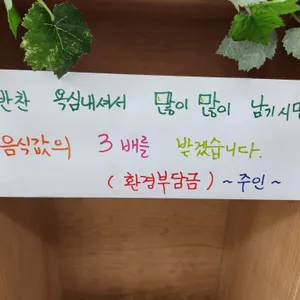 반찬 욕심내셔서 많이 많이 남기시면
음식값의 3배를 받겠습니다.
(환경부담금) ~주인~